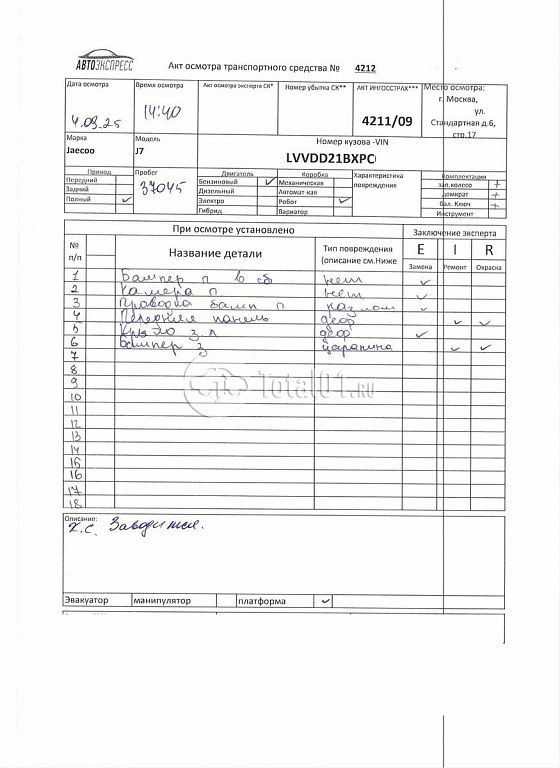 АВТОЭКСПРЕСС
Акт осмотра транспортного средства № 4212
Дата осмотра
4.09.25
Время осмотра
14:40
Акт осмотра эксперта СК*
Номер убытка СК**
АКТ ИНГОССТРАХ***
4211/09
Место осмотра:
г. Москва,
ул.
Стандартная д.6,
стр.17
Марка
Jaecoo
Модель
J7
Номер кузова -VIN
LVVDD21BXPC
Привод
Передний
Задний
Полный ✓
Пробег
37045
Двигатель
Бензиновый ✓
Дизельный
Электро
Гибрид
Коробка
Механическая
Автомат кая
Робот ✓
Вариатор
Характеристика
повреждения
Комплектация
зап.колесо +
домкрат +
бал. Ключ +
Инструмент
При осмотре установлено
Заключение эксперта
№
п/п
Название детали
Тип повреждения
(описание см.Ниже
E I R
Замена Ремонт Окраска
1 Бампер п в сб нет ✓
2 Камера п нет ✓
3 Проводка бамп п разлом ✓
4 Передняя панель деф ✓ ✓
5 Крыло з.л деф ✓
6 Бампер з царапина ✓ ✓
7
8
9
10
11
12
13
14
15
16
17
18
Total01.RU
Описание:
Х.С. Заводится.
Эвакуатор манипулятор платформа ✓